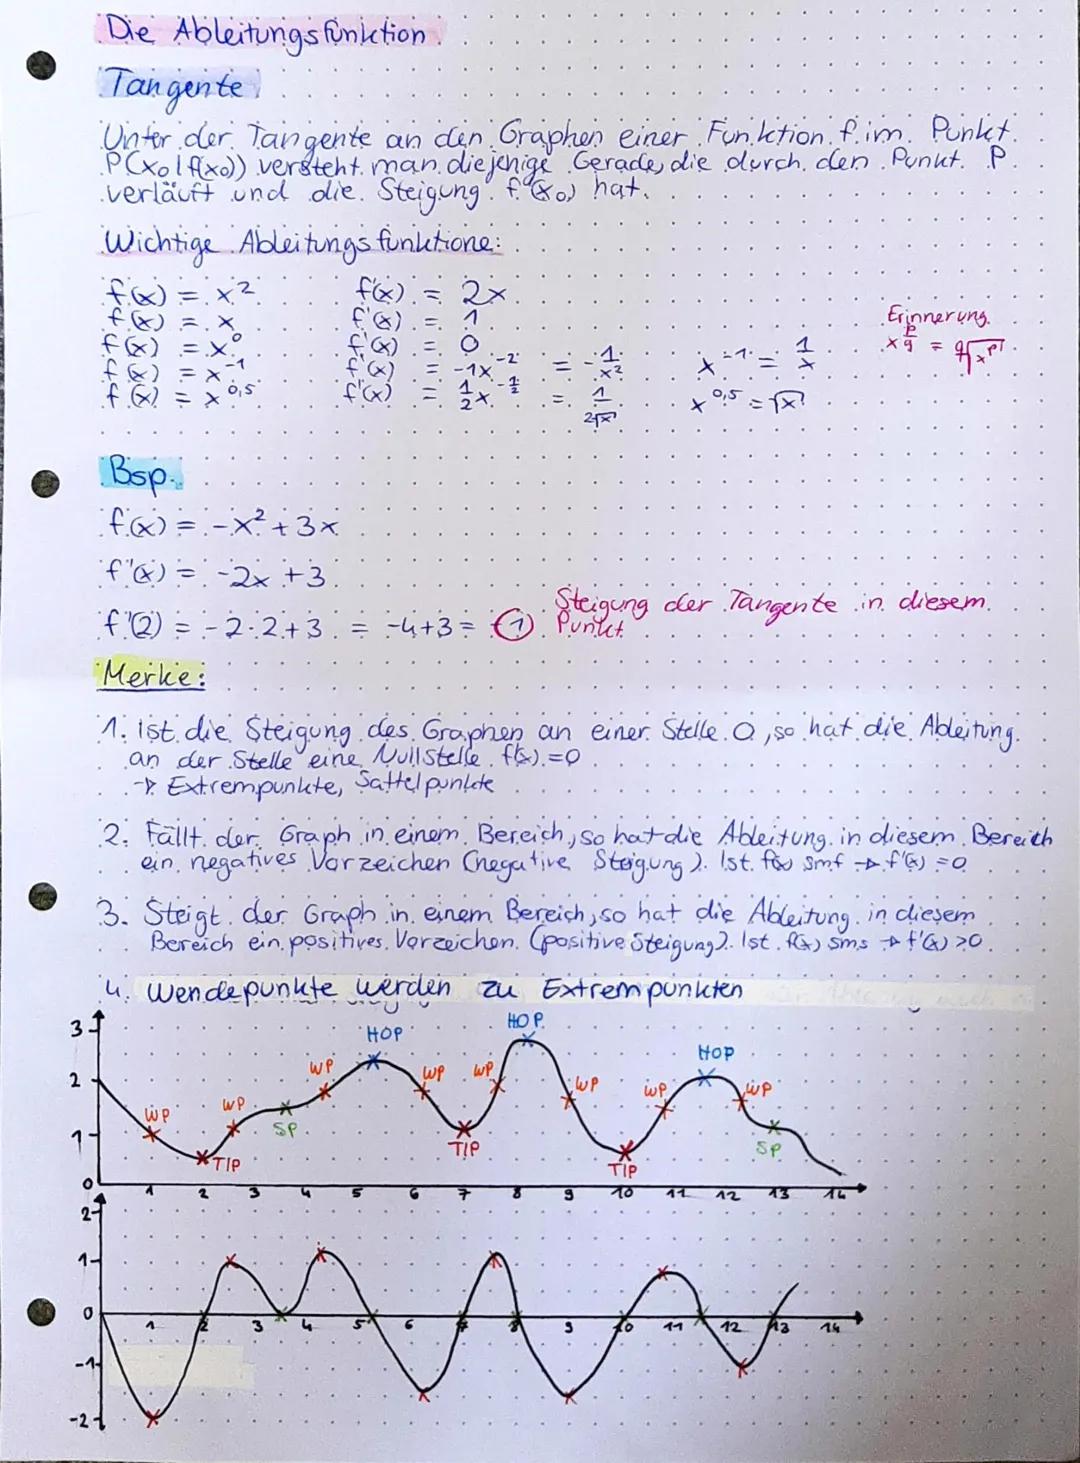 Die Ableitungsfunktion
Tangente
Unter der Tangente an den Graphen einer Funktion f im Punkt
P(x₀|f(x₀)) versteht man diejenige Gerade, die durch den Punkt P
verläuft und die Steigung f'(x₀) hat.
Wichtige Ableitungsfunktione:
f(x) = x² f'(x) = 2x
f(x) = x f'(x) = 1
f(x) = x⁰ f'(x) = 0
f(x) = x⁻¹ f'(x) = -1x⁻² = -1/x² x⁻¹ = 1/x
f(x) = x^0,5 f'(x) = 1/2 x^-1/2 = 1/(2√x) x^0,5 = √x
Erinnerung
x^(p/q) = q√x^p
Bsp.
f(x) = -x² + 3x
f'(x) = -2x + 3
f'(2) = -2·2+3 = -4+3 = -1
Steigung der Tangente in diesem
Punkt
Merke:
1. Ist die Steigung des Graphen an einer Stelle 0, so hat die Ableitung
an der Stelle eine Nullstelle f'(x)=0
→ Extrempunkte, Sattelpunkte
2. Fällt der Graph in einem Bereich, so hat die Ableitung in diesem Bereich
ein negatives Vorzeichen (negative Steigung). Ist f(x) smf → f'(x) =0
3. Steigt der Graph in einem Bereich, so hat die Ableitung in diesem
Bereich ein positives Vorzeichen (positive Steigung). Ist f(x) sms → f'(x) >0
4. Wendepunkte werden zu Extrempunkten
3
HOP
HOP
HOP
2
WP
WP
WP
WP
WP
WP
WP
WP
1
SP
SP
TIP
TIP
TIP
0
1 2 3 4 5 6 7 8 9 10 11 12 13 14
2
1
0
1 2 3 4 5 6 7 8 9 10 11 12 13 14
-1
-2